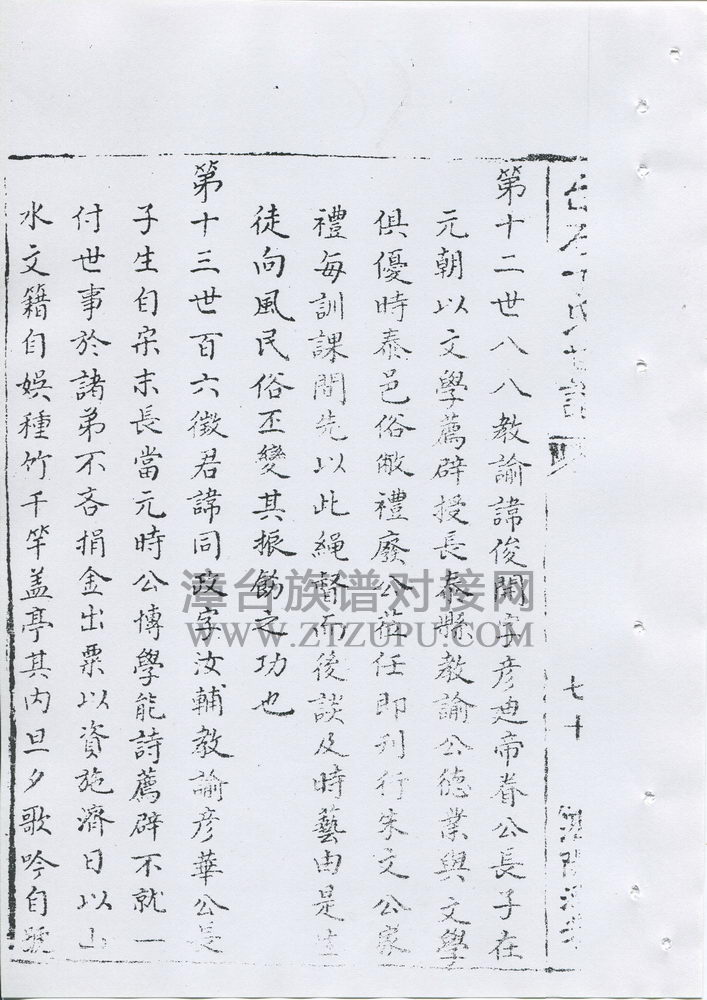 白石丁氏古譜
七十
第十二世八八教諭諱俊開字彦迪帝眷公長子在
元朝以文學薦辟授長泰縣教諭公德業與文學
俱優時泰邑俗敝禮廢公莅任即刋行朱文公家
禮每訓課間先以此繩督而後談及時藝由是生
徒向風民俗丕變其振飭之功也
第十三世百六徵君諱同政字汝輔教諭彦華公長
子生自宋末長當元時公博學能詩薦辟不就一
付世事於諸弟不吝捐金出粟以資施濟日以山
水文籍自娯種竹千竿盖亭其内旦夕歌吟自號
漳台族谱对接网
WWW.ZTZUPU.COM